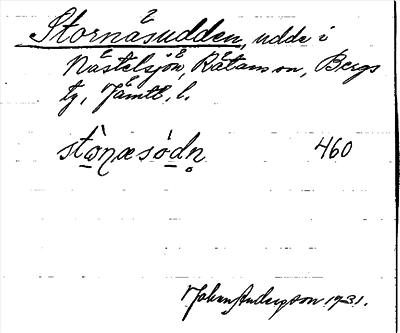 Stornäsudden, udde i
Nästelsjön, Rätan sn, Bergs
tg, Jämtl. l.
stò̱ṉæsó̱dn̥ 460
Johan Anderson 1931.